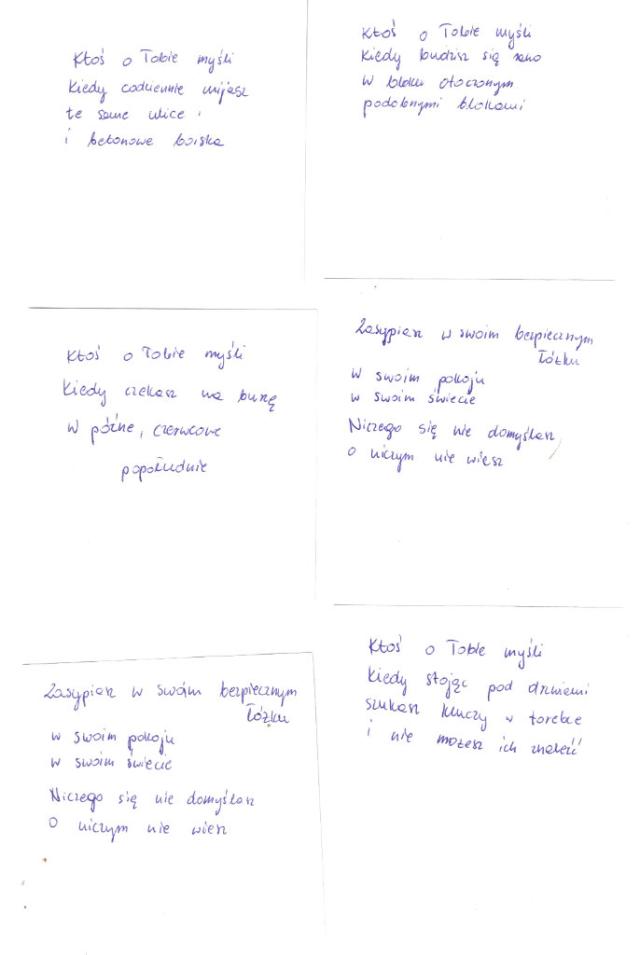 Ktoś o Tobie myśli
Kiedy codziennie mijasz
te same ulice
i betonowe boiska
Ktoś o Tobie myśli
Kiedy budzisz się rano
w bloku otoczonym
podobnymi blokami
Ktoś o Tobie myśli
Kiedy czekasz na burzę
w późne, czerwcowe
popołudnie
Zasypiasz w swoim bezpiecznym
łóżku
w swoim pokoju
w swoim świecie
Niczego się nie domyślasz,
o niczym nie wiesz
Zasypiasz w swoim bezpiecznym
łóżku
w swoim pokoju
w swoim świecie
Niczego się nie domyślasz
O niczym nie wiesz
Ktoś o Tobie myśli
Kiedy stojąc pod drzwiami
szukasz kluczy w torebce
i nie możesz ich znaleźć